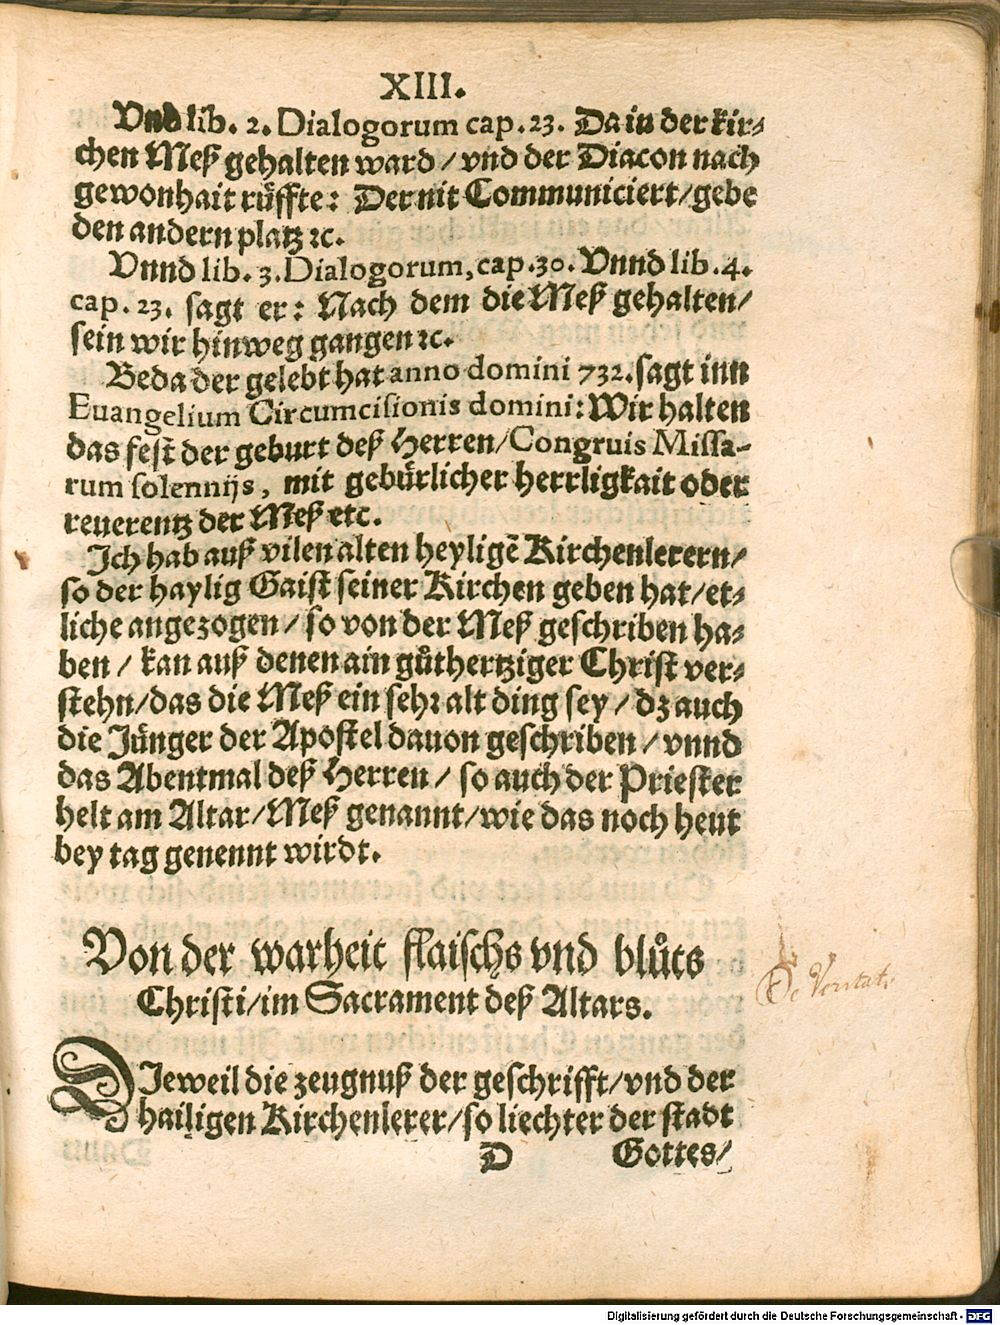 XIII.
Vnd lib. 2. Dialogorum cap. 23. Da in der kir⸗
chen Meß gehalten ward / vnd der Diacon nach
gewonhait rüffte: Der nit Communiciert/gebe
den andern platz ꝛc.
Vnnd lib. 3. Dialogorum, cap. 30. Vnnd lib. 4.
cap. 23. sagt er: Nach dem die Meß gehalten/
sein wir hinweg gangen ꝛc.
Beda der gelebt hat anno domini 732. sagt inn
Euangelium Circumcisionis domini: Wir halten
das fest der geburt deß Herren/Congruis Missa-
rum solennijs, mit gebürlicher herrligkait oder
reuerentz der Meß etc.
Ich hab auß vilen alten heyligẽ Kirchenlerern/
so der haylig Gaist seiner Kirchen geben hat/et⸗
liche angezogen / so von der Meß geschriben ha⸗
ben / kan auß denen ain gůthertziger Christ ver⸗
stehn/das die Meß ein sehr alt ding sey / dz auch
die Jünger der Apostel dauon geschriben / vnnd
das Abentmal deß Herren / so auch der Priester
helt am Altar/Meß genannt/wie das noch heut
bey tag genennt wirdt.
Von der warheit flaischs vnd blůts
Christi/im Sacrament deß Altars.
De Veritate
DIeweil die zeugnuß der geschrifft/vnd der
hailigen Kirchenlerer/so liechter der stadt
D Gottes/
Digitalisierung gefördert durch die Deutsche Forschungsgemeinschaft - DFG